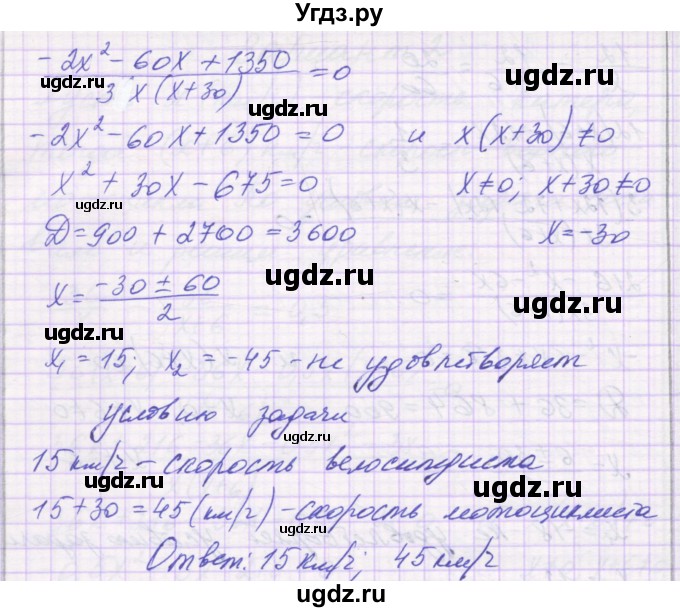 Угдз.ру
(-2x² - 60x + 1350)/(3x(x+30)) = 0
-2x² - 60x + 1350 = 0 и x(x+30) ≠ 0
x² + 30x - 675 = 0 x ≠ 0; x + 30 ≠ 0
Д = 900 + 2700 = 3600 x = -30
x = (-30 ± 60)/2
x₁ = 15; x₂ = -45 - не удовлетворяет
условию задачи
15 км/ч - скорость велосипедиста
15 + 30 = 45 (км/ч) - скорость мотоциклиста
Ответ: 15 км/ч; 45 км/ч
ugdz.ru
ugdz.ru
ugdz.ru
ugdz.ru
ugdz.ru
ugdz.ru
ugdz.ru
ugdz.ru
ugdz.ru
ugdz.ru
ugdz.ru
ugdz.ru
ugdz.ru